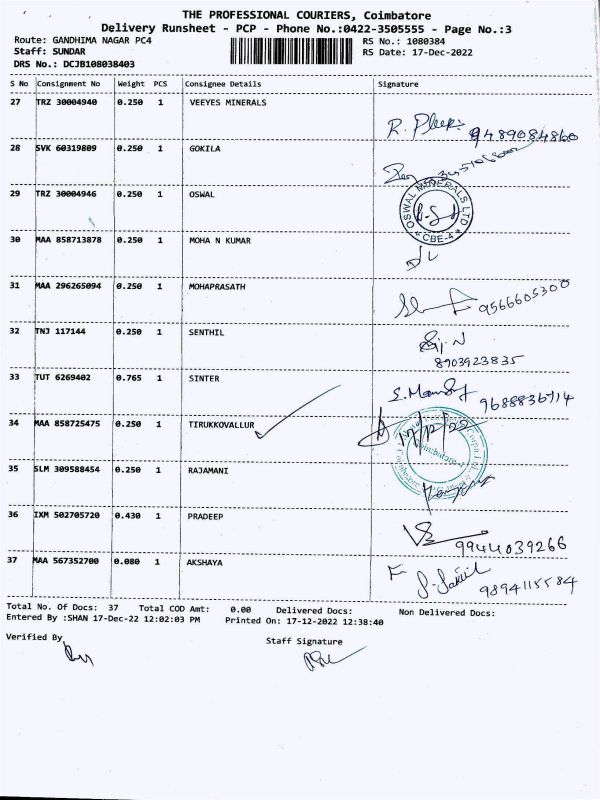 THE PROFESSIONAL COURIERS, Coimbatore
Delivery Runsheet - PCP - Phone No.:0422-3505555 - Page No.:3
Route: GANDHIMA NAGAR PC4 RS No.: 1080384
Staff: SUNDAR RS Date: 17-Dec-2022
DRS No.: DCJB108038403
S No Consignment No Weight PCS Consignee Details Signature
27 TRZ 30004940 0.250 1 VEEYES MINERALS
9489084860
28 SVK 60319809 0.250 1 GOKILA
29 TRZ 30004946 0.250 1 OSWAL
OSWAL MINERALS LTD
CBE-4
30 MAA 858713878 0.250 1 MOHA N KUMAR
31 MAA 296265094 0.250 1 MOHAPRASATH
9566605300
32 TNJ 117144 0.250 1 SENTHIL
8903923835
33 TUT 6269402 0.765 1 SINTER
9688836714
34 MAA 858725475 0.250 1 TIRUKKOVALLUR
17/12/22
35 SLM 309588454 0.250 1 RAJAMANI
36 IXM 502705720 0.430 1 PRADEEP
9944039266
37 MAA 567352700 0.080 1 AKSHAYA
9894115584
Total No. Of Docs: 37 Total COD Amt: 0.00 Delivered Docs: Non Delivered Docs:
Entered By :SHAN 17-Dec-22 12:02:03 PM Printed On: 17-12-2022 12:38:40
Verified By Staff Signature